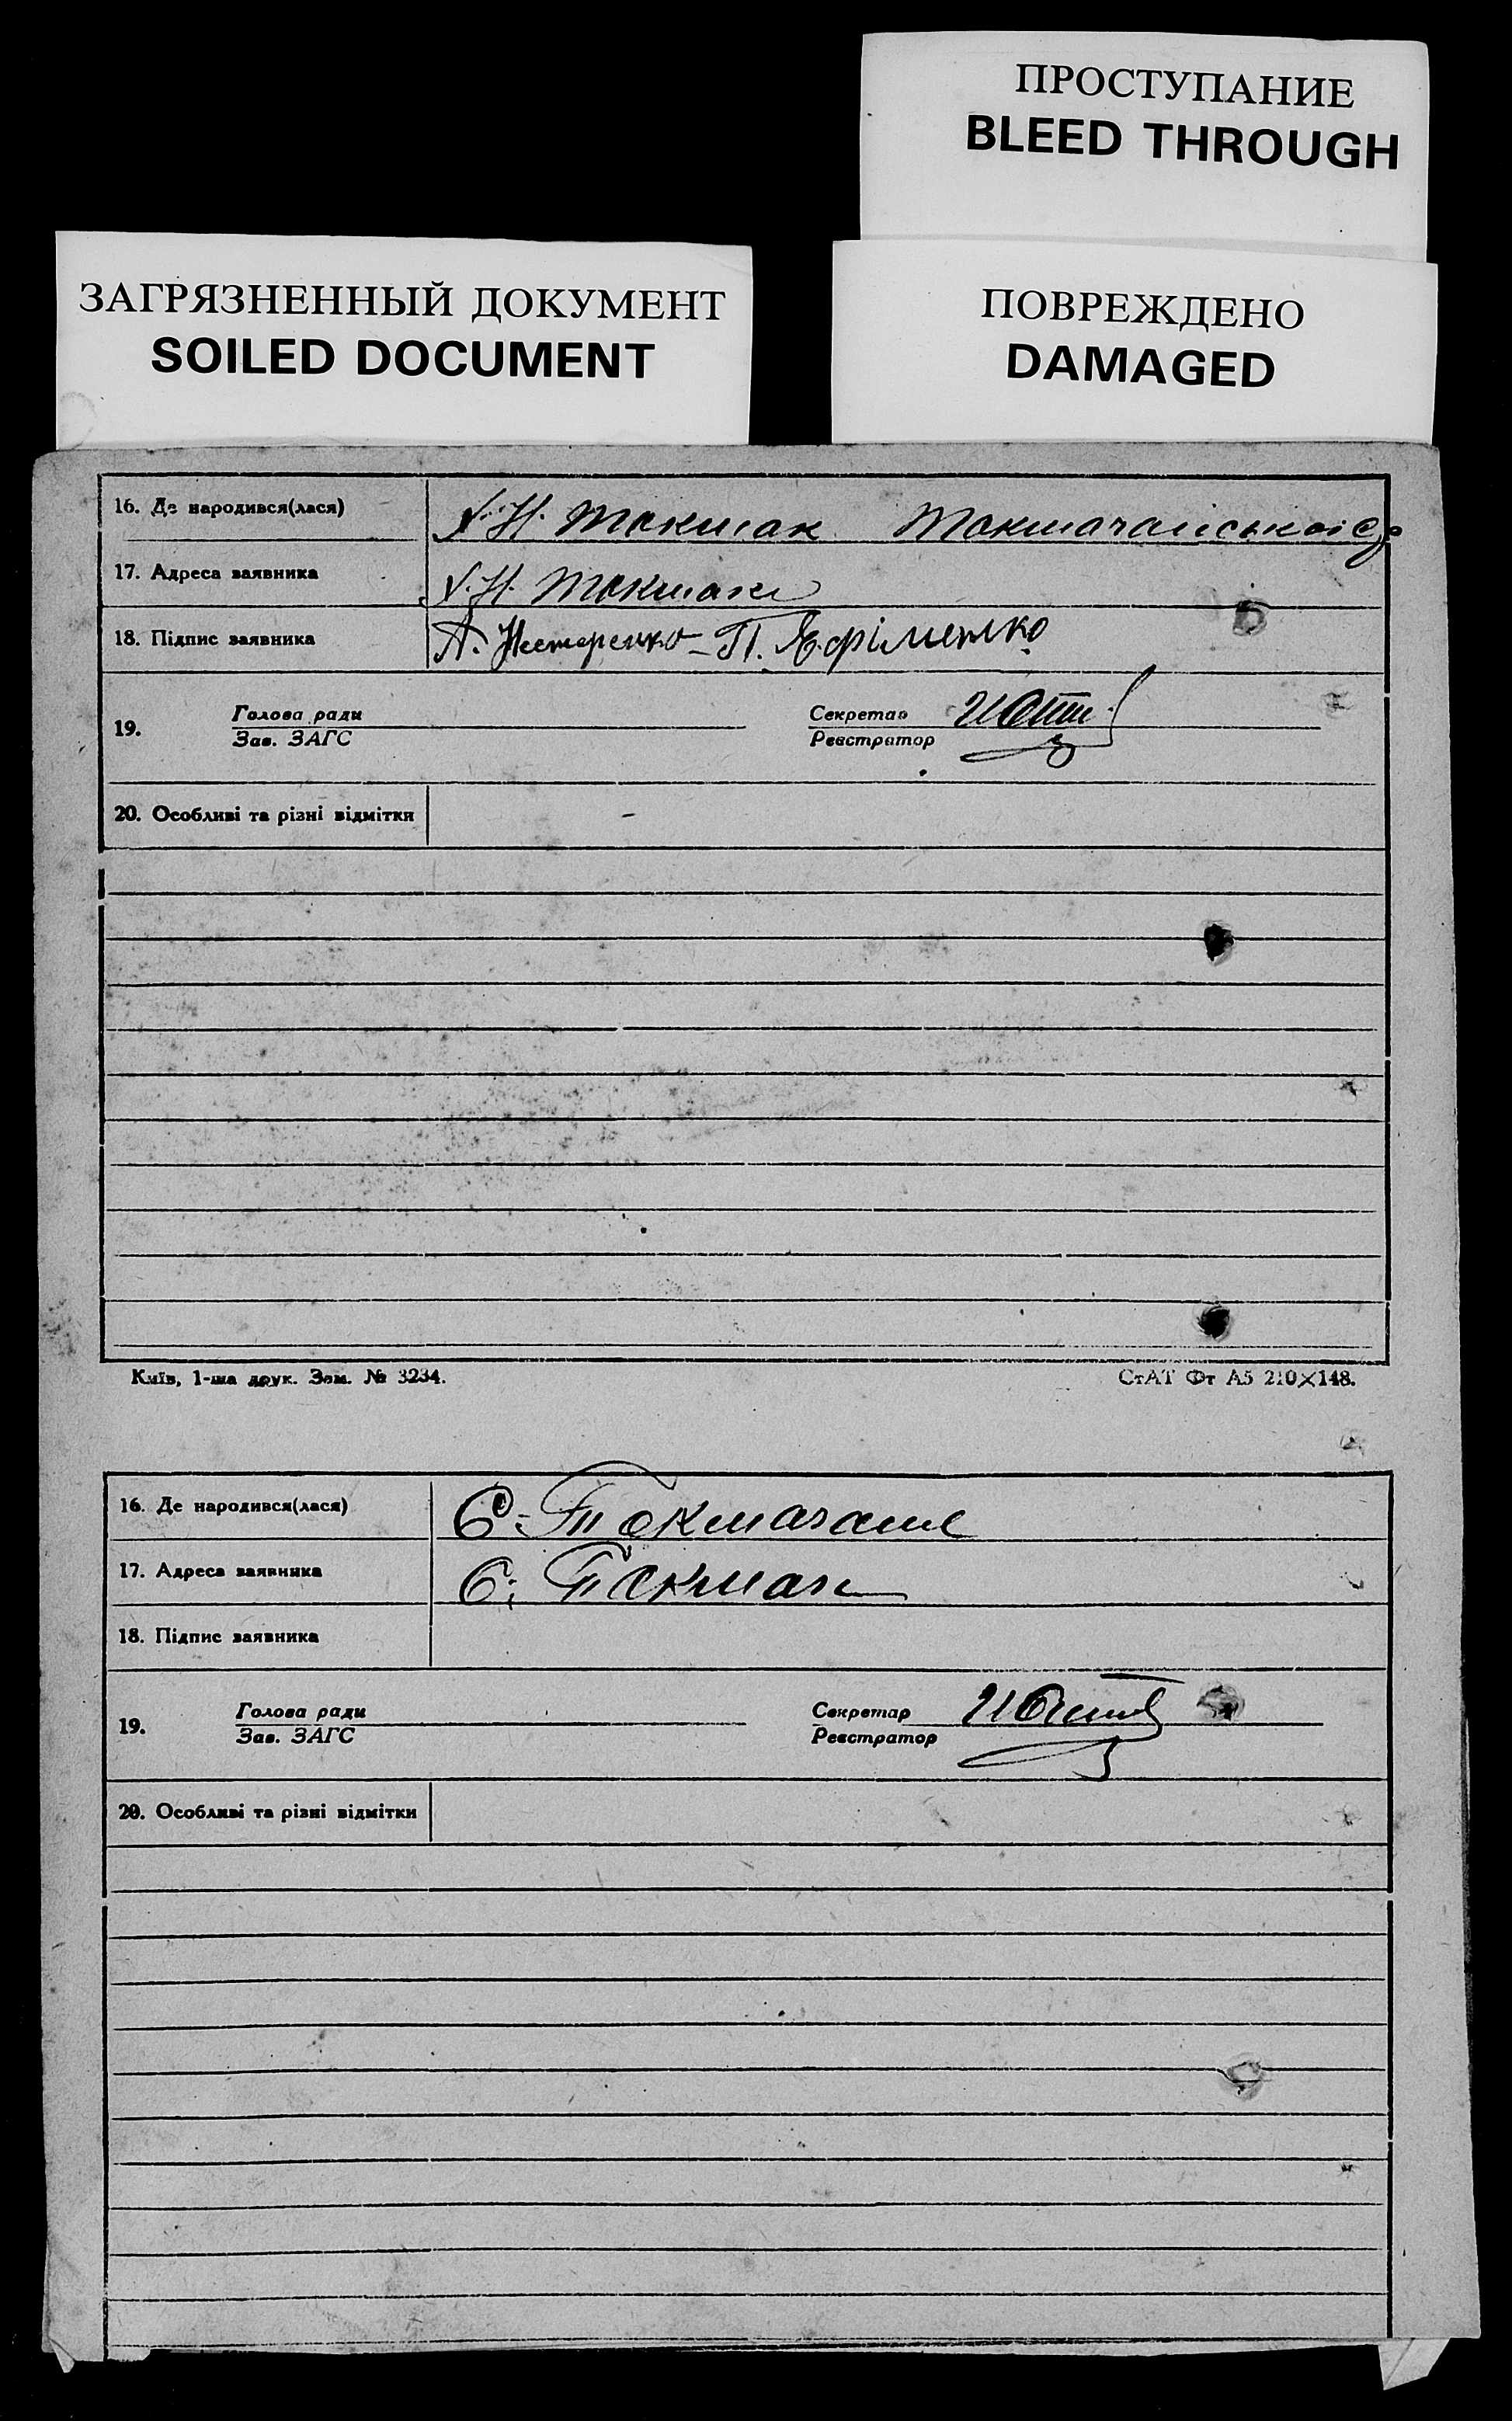 ПРОСТУПАНИЕ
BLEED THROUGH
ЗАГРЯЗНЕННЫЙ ДОКУМЕНТ
SOILED DOCUMENT
ПОВРЕЖДЕНО
DAMAGED
16. Де народився(лася) Н. Токмак
17. Адреса заявника Н. Токмак
18. Підпис заявника А. Нестеренко – П. Яфріменко
19. Голова ради
Зав. ЗАГС
Секретар
Реєстратор
20. Особливі та різні відмітки
Київ, 1-ша друк. Зам. № 3234.
СтАТ Фт А5 210×148.
16. Де народився(лася) С.
17. Адреса заявника С. Токмак
18. Підпис заявника
19. Голова ради
Зав. ЗАГС
Секретар
Реєстратор
20. Особливі та різні відмітки